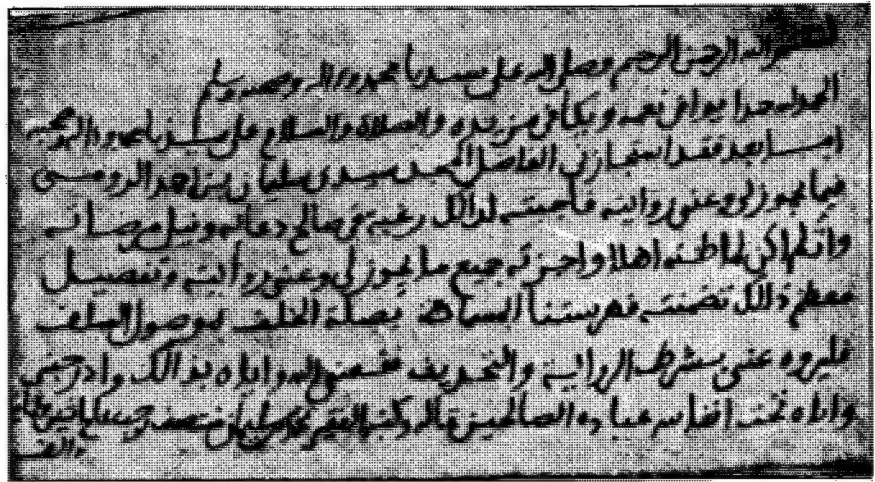 بسم الله الرحمن الرحيم وصلى الله على سيدنا محمد وءاله وصحبه وسلم
الحمد لله حمدا يوافي نعمه ويكافئ مزيده والصلاة والسلام على سيدنا محمد وءاله وصحبه
أما بعد فقد استجازني الفاضل سيدي سليمان بن احمد
فيما يجوز لي وعني روايته فأجبته لذالك رغبة في صالح دعائه ونيل مرضاته
وان لم اكن لما ظنه اهلا واجزته جميع ما يجوز لي وعني روايته وتفصيل
معظم ذالك تضمنته فهرستنا المسماة بصلة الخلف بموصول السلف
فليروه عني بشرط الرواية والتحديث نفعني الله واياه بذالك وادرجني
واياه تحت انفاس عباده الصالحين قاله وكتبه الفقير محمد بن سليمان منتصف
والف